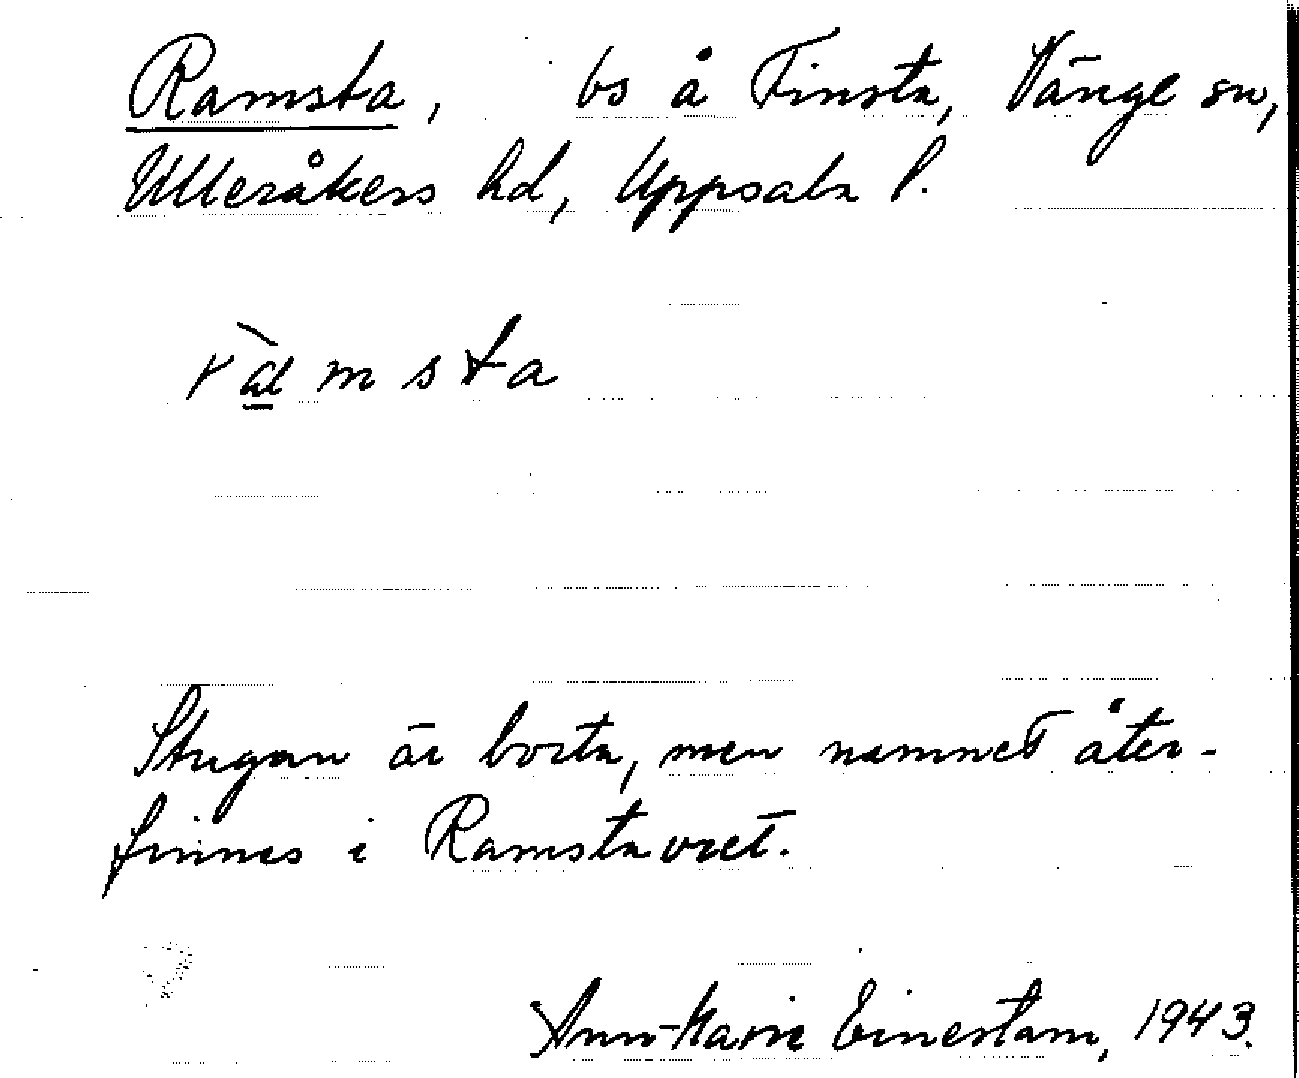 Ramsta, bs å Finsta, Vänge sn,
Ulleråkers hd, Uppsala l.
ràmsta
Stugan är borta, men namnet åter-
finnes i Ramstavret.
Ann-Marie Einerstam, 1943.